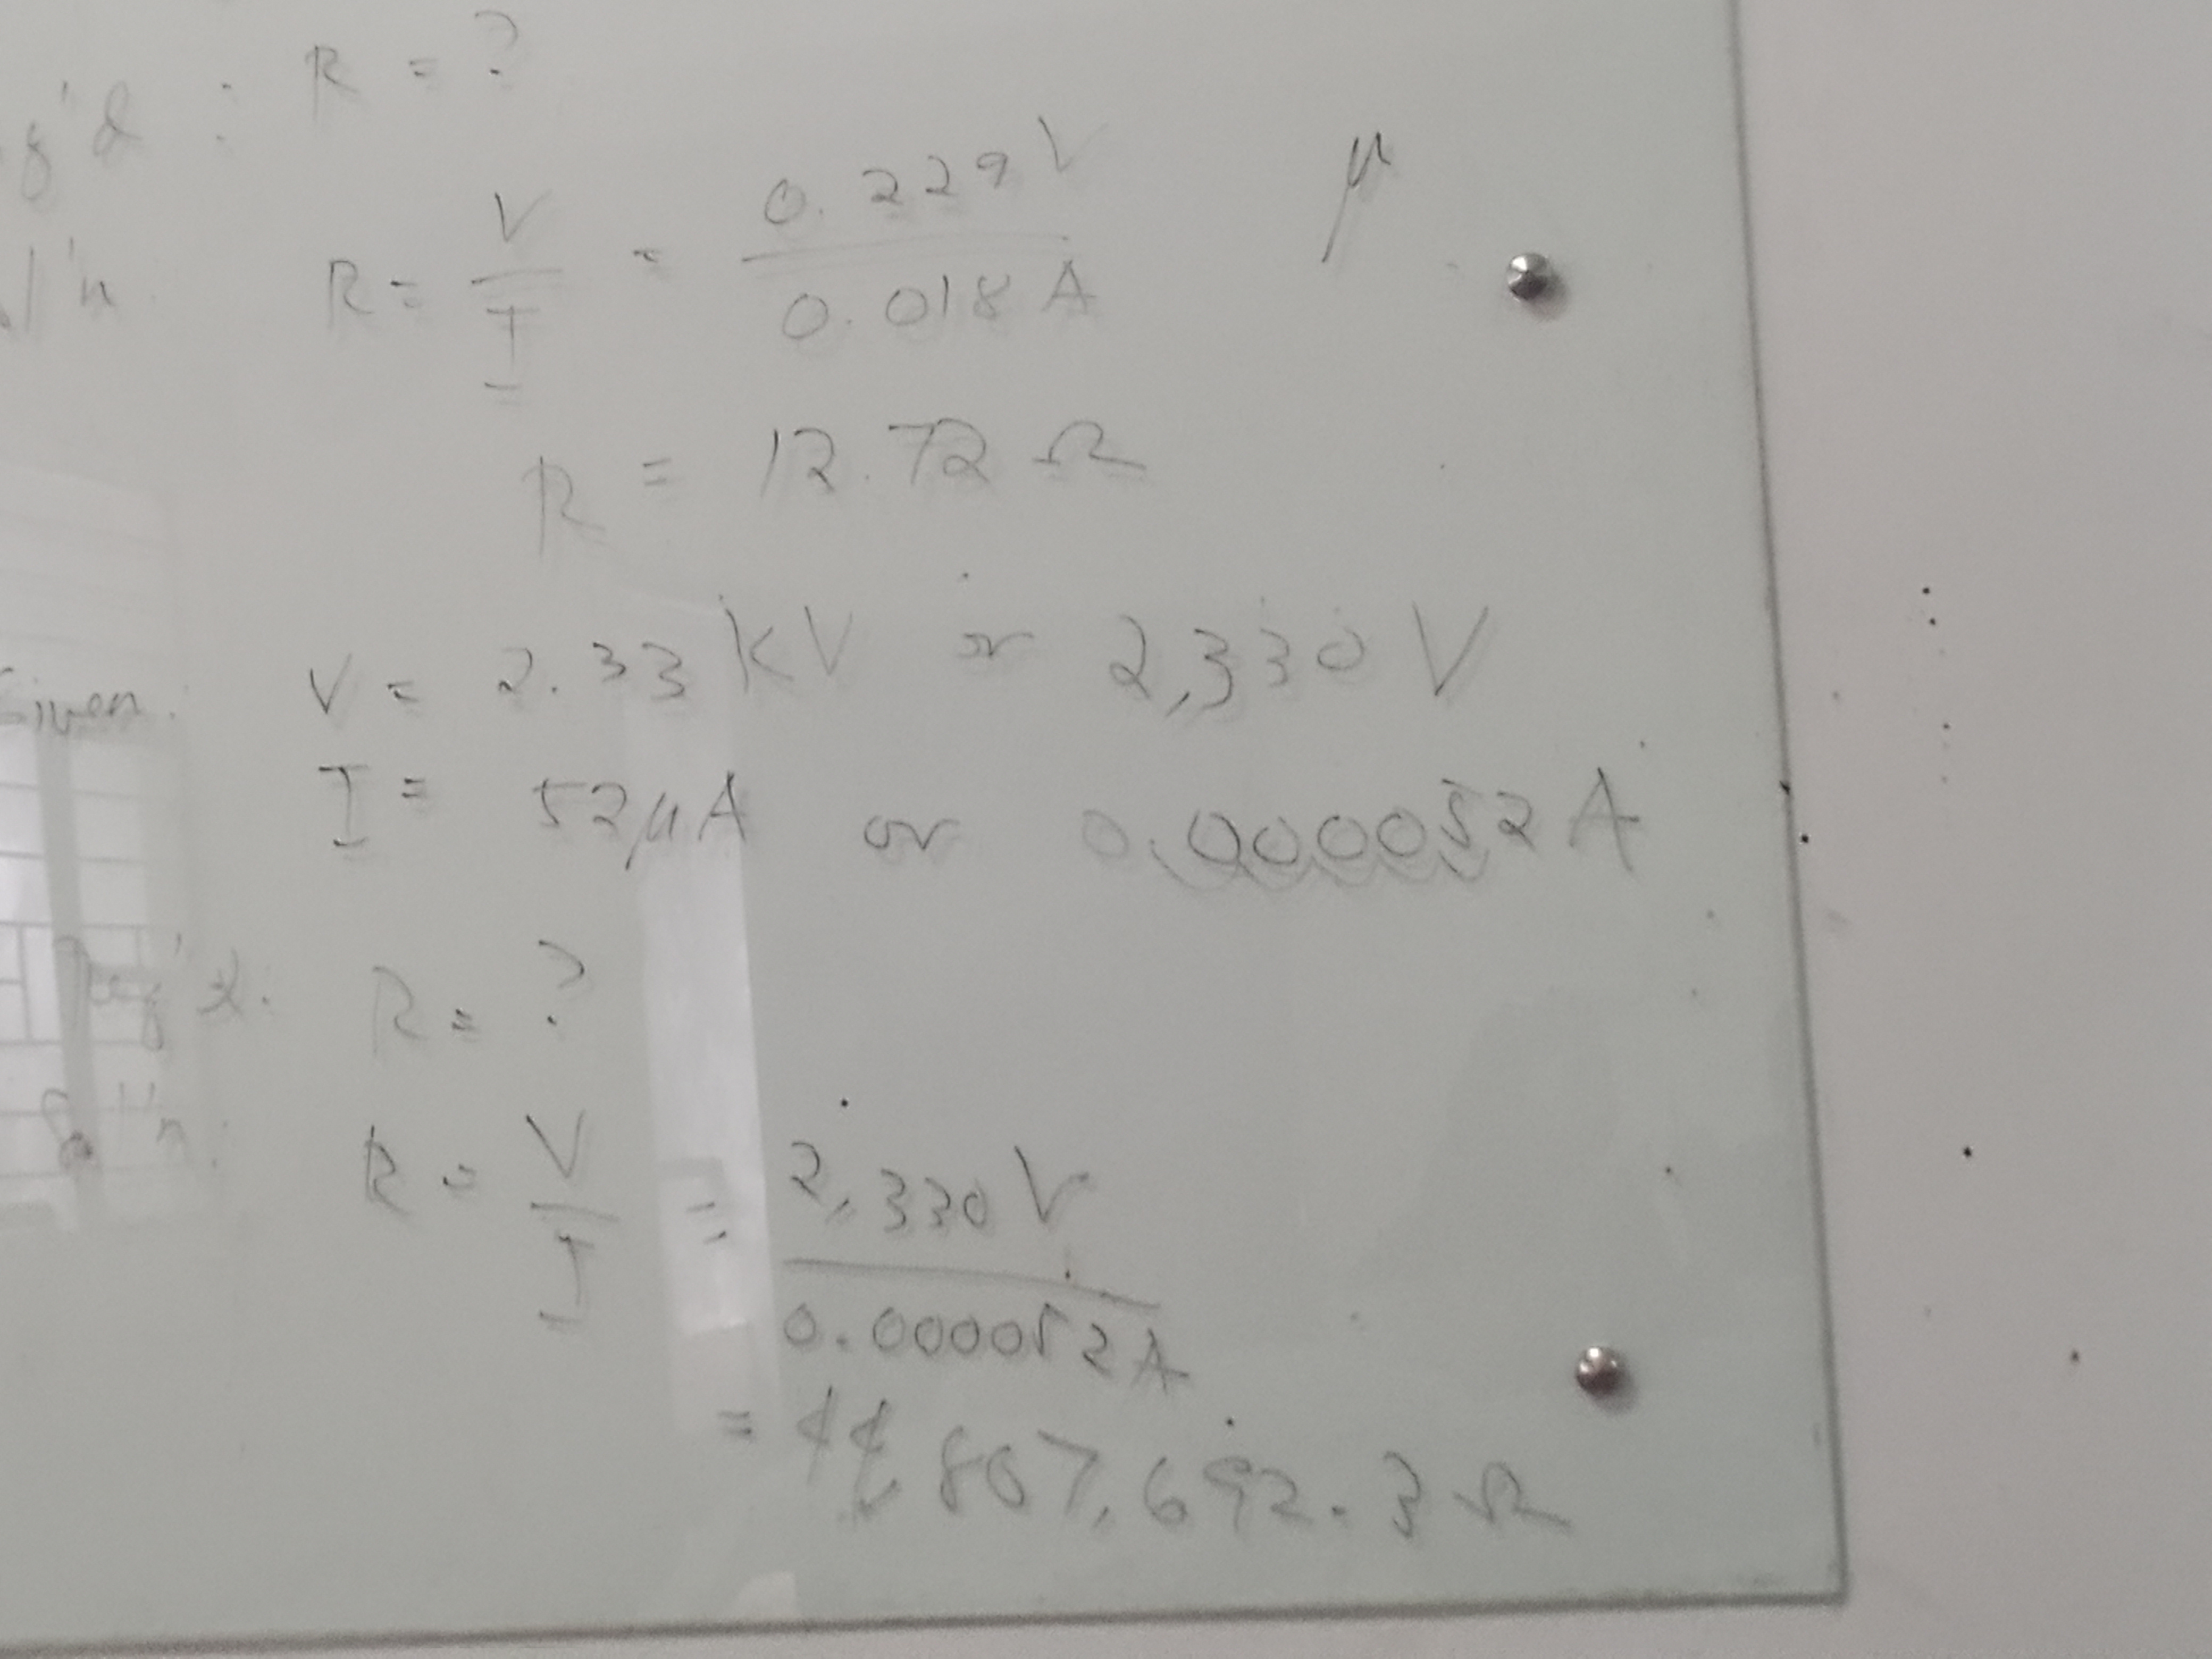 R = ?
q'd :
μ
R = V/I = 0.229 V / 0.018 A
l'n
R = 12.72 Ω
Given: V = 2.33 kV or 2,330 V
I = 52 μA or 0.000052 A
Req'd: R = ?
Sol'n: R = V/I = 2,330 V / 0.000052 A
= 44,807,692.3 Ω